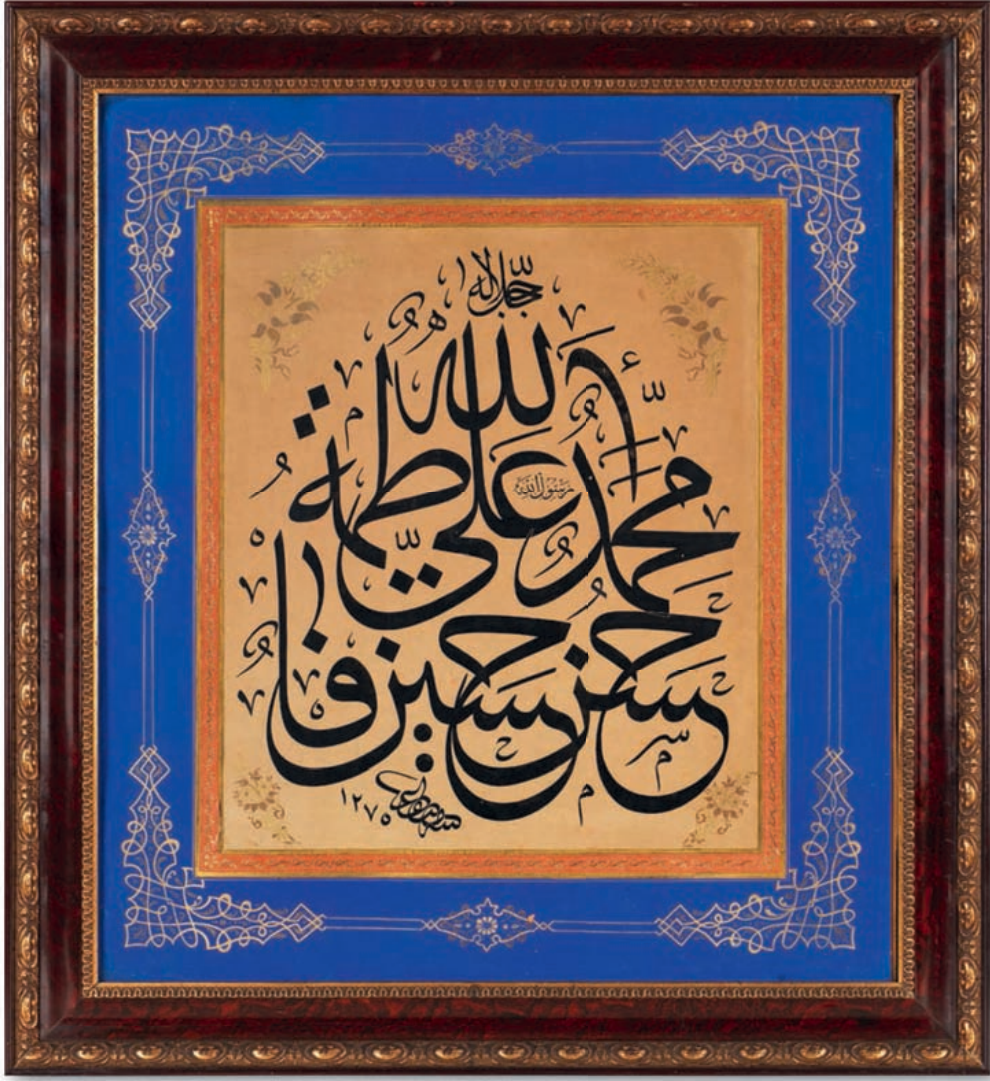 جل جلاله
الله
محمد
رسول الله
علي
فاطمة
حسن حسين
١٢٧٥